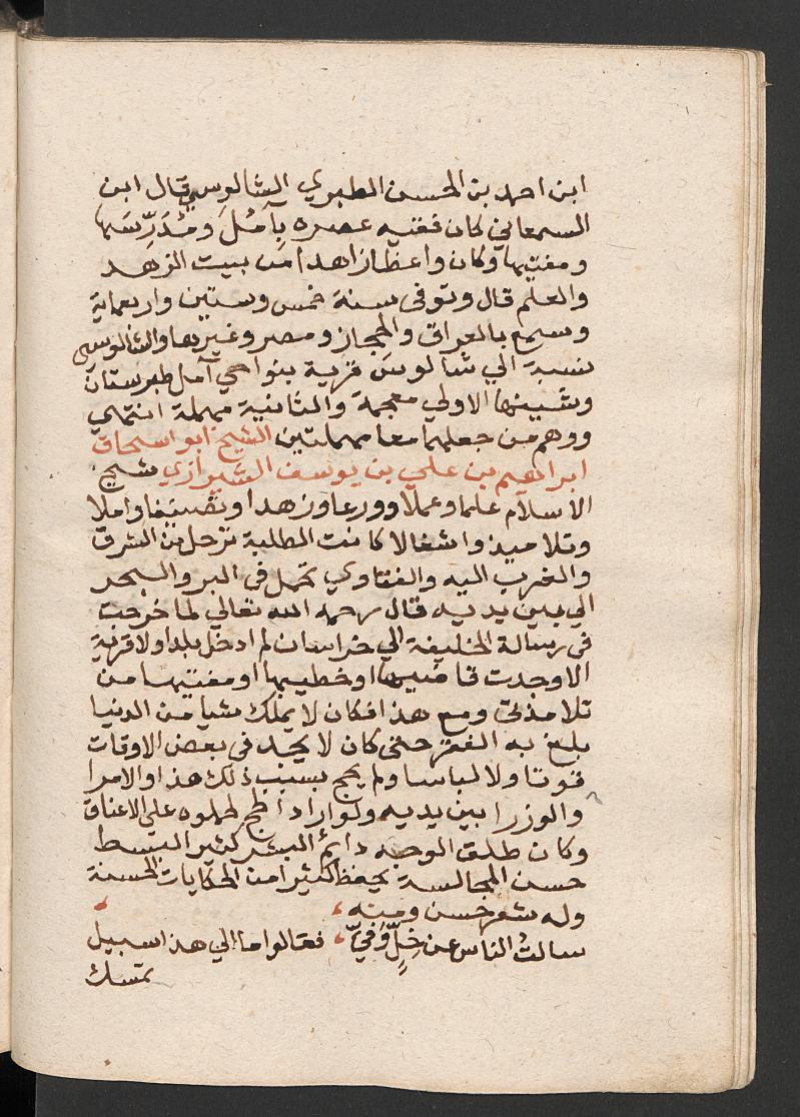 ابن احمد بن الحسن الطبري الشالوسي قال ابن
السمعاني كان فقيه عصره بِآمُلَ ومُدَرِّسَها
ومفتيها وكان واعظا زاهدا من بيت الزهد
والعلم قال وتوفى سنة خمس وستين واربعماية
وسمع بالعراق والحجاز ومصر وغيرها والشالوسي
نسبة الي شالوس قرية بنواحي آمل طبرستان
وشينها الاولي معجمة والثانية مهملة انتهي
ووهم من جعلهما معا مهملتين الشيخ ابو اسحاق
ابراهيم بن علي بن يوسف الشيرازي شيخ
الاسلام علما وعملا وورعا وزهدا وتصنيفا واملا
وتلاميذ واشغالا كانت الطلبة ترحل من الشرق
والغرب اليه والفتاوي تحمل في البر والبحر
الي بين يديه قال رحمه الله تعالي لما خرجت
فى رسالة الخليفة الي خراسان لم ادخل بلدا ولا قرية
الا وجدت قاضيها او خطيبها او مفتيها من
تلامذتى ومع هذا فكان لا يملك شيا من الدنيا
بلغ به الفقر حتى كان لا يجد فى بعض الاوقات
قوتا ولا لباسا ولم يحج بسبب ذلك هذا والامرا
والوزرا بين يديه ولو اراد الحج لحملوه علي الاعناق
وكان طلق الوجه دائم البشر كثير البسط
حسن المجالسة يحفظ كثيرا من الحكايات الحسنة
وله شعر حسن ومنه
سالتُ الناس عن خِلٍّ وَفيٍّ فقالوا ما الي هذا سبيل
تمسك